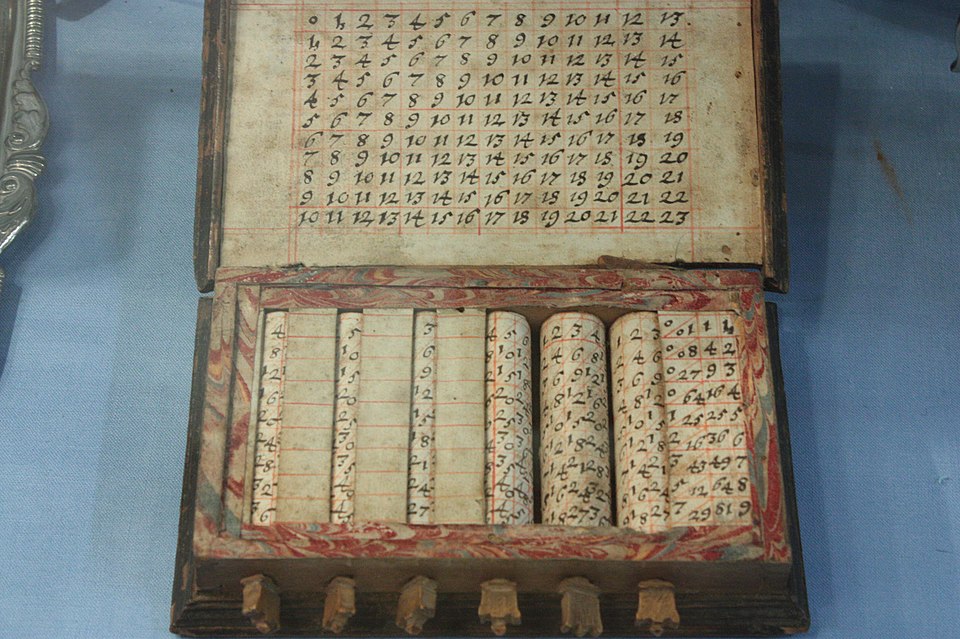 0 1 2 3 4 5 6 7 8 9 10 11 12 13
1 2 3 4 5 6 7 8 9 10 11 12 13 14
2 3 4 5 6 7 8 9 10 11 12 13 14 15
3 4 5 6 7 8 9 10 11 12 13 14 15 16
4 5 6 7 8 9 10 11 12 13 14 15 16 17
5 6 7 8 9 10 11 12 13 14 15 16 17 18
6 7 8 9 10 11 12 13 14 15 16 17 18 19
7 8 9 10 11 12 13 14 15 16 17 18 19 20
8 9 10 11 12 13 14 15 16 17 18 19 20 21
9 10 11 12 13 14 15 16 17 18 19 20 21 22
10 11 12 13 14 15 16 17 18 19 20 21 22 23
4 5 3 5 1 2 3 4 1 2 3 0 01 1 1
8 10 6 10 2 4 6 8 2 4 6 0 08 4 2
12 15 9 15 0 27 9 3
16 20 12 20 0 64 16 4
20 25 15 25 1 25 25 5
24 30 18 30 2 16 36 6
28 35 21 35 3 43 49 7
32 40 24 40 5 12 64 8
36 45 27 45 7 29 81 9